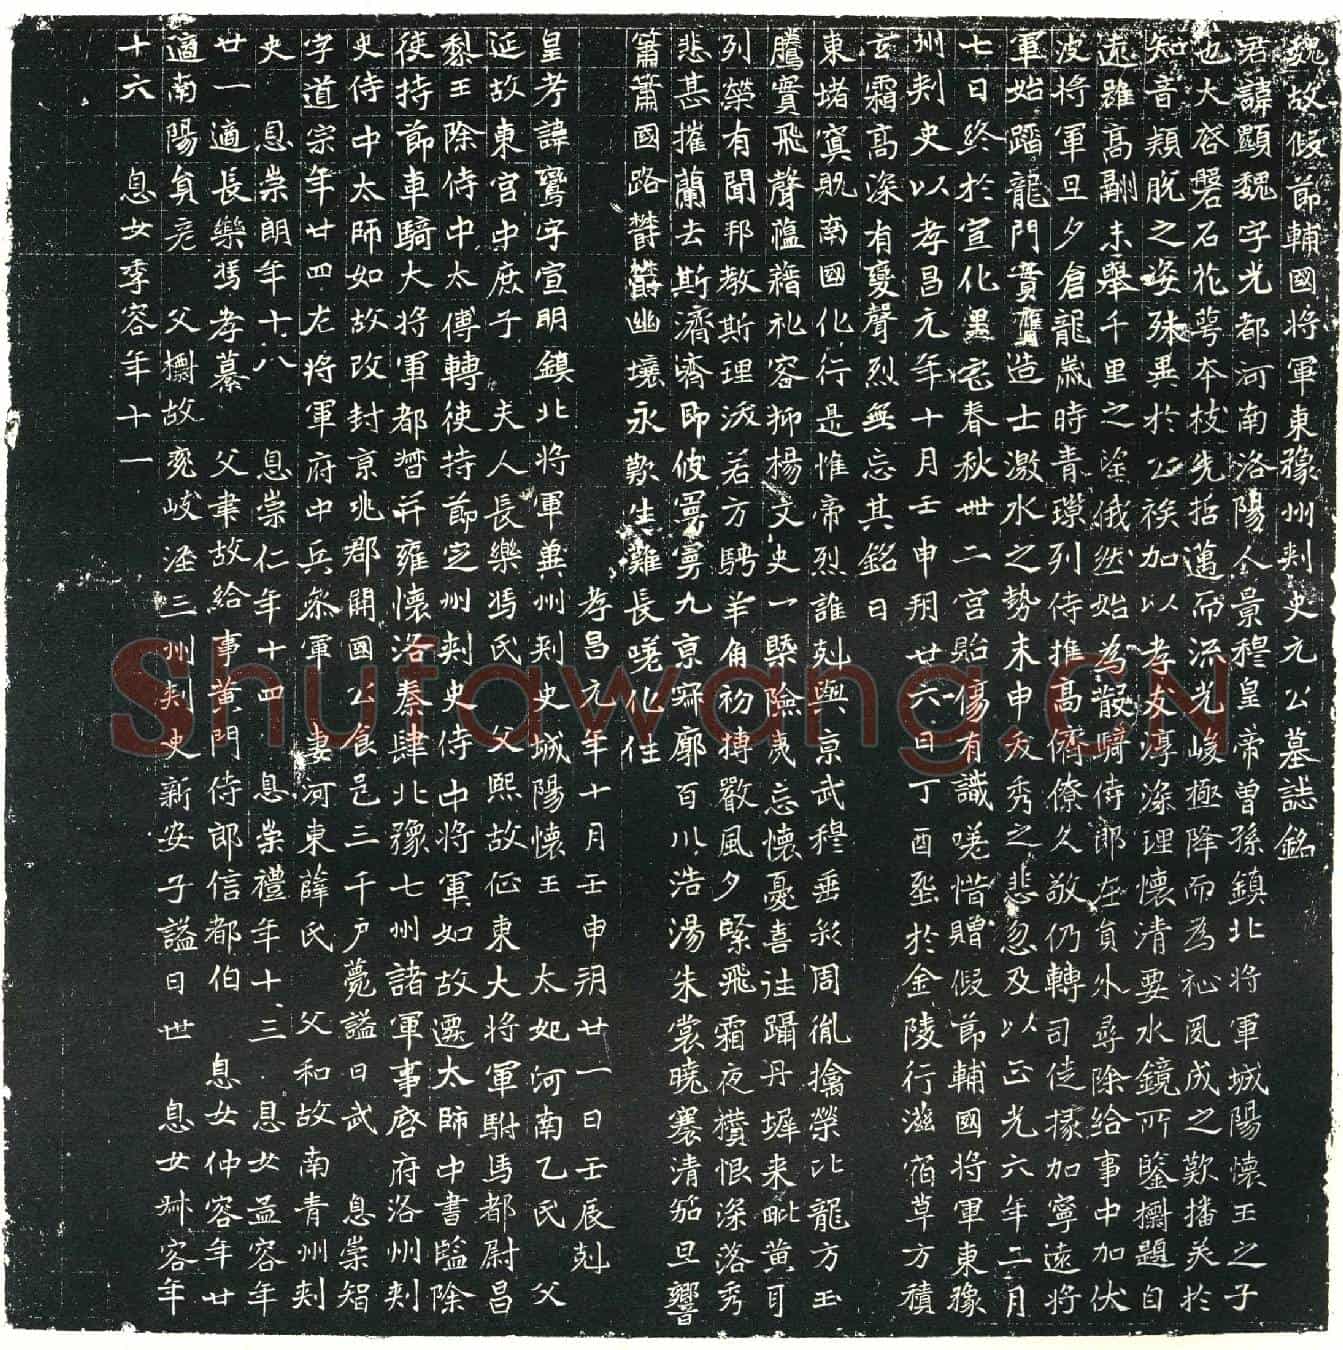 魏故假節輔國將軍東豫州刺史元公墓誌銘
君諱顯魏字光都河南洛陽人景穆皇帝曾孫鎮北將軍城陽懷王之子
也大啓磐石花萼本枝先哲邁而流光峻極降而為祉夙成之歎播美於
知音穎脫之姿殊異於公族加以孝友淳深理懷清要水鏡所鑒擱題自
遠雖高翮未舉千里之塗俄然始為散騎侍郎在員外尋除給事中加伏
波將軍旦夕倉龍歲時青璅列侍攜高儕僚久敬仍轉司徒掾加寧遠將
軍始蹈龍門實膺造士激水之勢未申友秀之悲忽及以正光六年二月
七日終於宣化里宅春秋卌二宮貽傷有識嗟惜贈假節輔國將軍東豫
州刺史以孝昌元年十月壬申朔廿六日丁酉窆於金陵行滋宿草方積
玄霜高深有變聲烈無忘其銘曰
東堵寘貺南國化行是惟帝烈誰剋與京武穆垂彩周胤擒榮比龍方玉
騰實飛聲蘊藉礼容抑楊文史一槩險夷忘懷憂喜往躡丹墀来毗黄耳
列榮有聞邦教斯理㳊若方騁羊角初摶歡風夕緊飛霜夜櫕恨深落秀
悲甚摧蘭去斯濟濟即彼寥寥九京寂廓百川浩湯朱裳曉褰清笳旦響
簫簫國路鬱鬱幽壤永歎生難長嗟化往
孝昌元年十月壬申朔廿一日壬辰剋
皇考諱鸞字宣明鎮北將軍兼州刾史城陽懷王 太妃河南乙氏 父
延故東宮中庶子 夫人長樂馮氏 父熙故征東大將軍駙馬都尉昌
黎王除侍中太傅轉使持節定州刾史侍中將軍如故遷太師中書監除
使持節車騎大將軍都督并雍懷洛秦肆北豫七州諸軍事啓府洛州刾
史侍中太師如故改封京兆郡開國公食邑三千户薨謚曰武 息崇智
字道宗年廿四左將軍府中兵叅軍 妻河東薛氏 父和故南青州刾
史 息崇朗年十八 息崇仁年十四 息崇禮年十三 息女孟容年
廿一適長樂馮孝纂 父聿故給事黄門侍郎信都伯 息女仲容年廿
適南陽員彦 父擱故兖岐涇三州刾史新安子謚曰世 息女叔容年
十六 息女季容年十一
Shufawang.CN